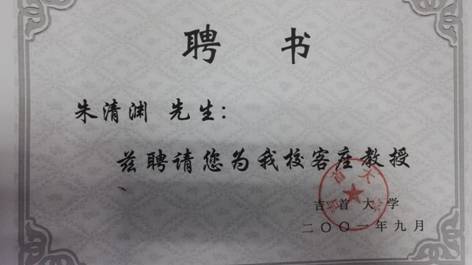 聘 书
朱清渊 先生：
兹聘请您为我校客座教授
吉首大学
二〇〇一年九月